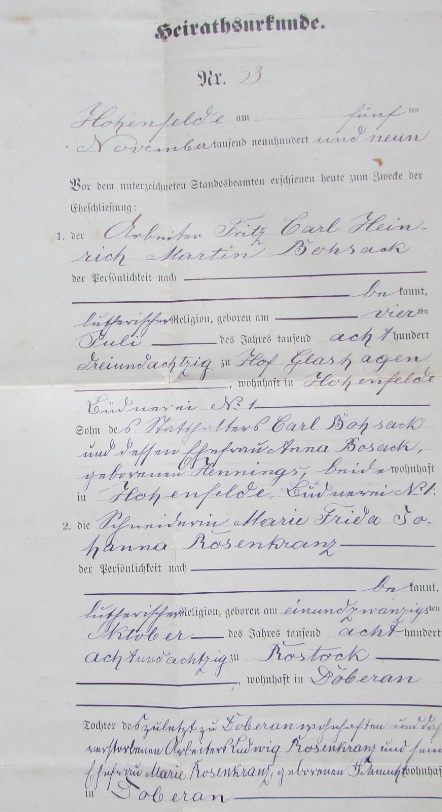 Heirathsurkunde.
Nr. 33
Hohenfelde am fünf ten
November tausend neunhundert und neun
Vor dem unterzeichneten Standesbeamten erschienen heute zum Zwecke der
Eheschließung:
1. der Arbeiter Fritz Carl Hein-
rich Martin Bohsack
der Persönlichkeit nach
be kannt,
lutherischer Religion, geboren am vier ten
Juli des Jahres tausend acht hundert
dreiundachtzig zu Hof Glashagen
, wohnhaft in Hohenfelde
Büdnerei No. 1
Sohn des Statthalters Carl Bohsack
und dessen Ehefrau Anna Bosack,
geborenen Hennings, beide wohnhaft
in Hohenfelde, Büdnerei No. 1.
2. die Schneiderin Marie Frida Jo-
hanna Rosenkranz
der Persönlichkeit nach
be kannt,
lutherischer Religion, geboren am einundzwanzigsten
Oktober des Jahres tausend acht hundert
achtundachtzig zu Rostock
, wohnhaft in Doberan
Tochter des zuletzt zu Doberan wohnhaften und
verstorbenen Arbeiters Ludwig Rosenkranz und sein
Ehefrau Marie Rosenkranz, geborenen Schmidt wohnhaft
in Doberan